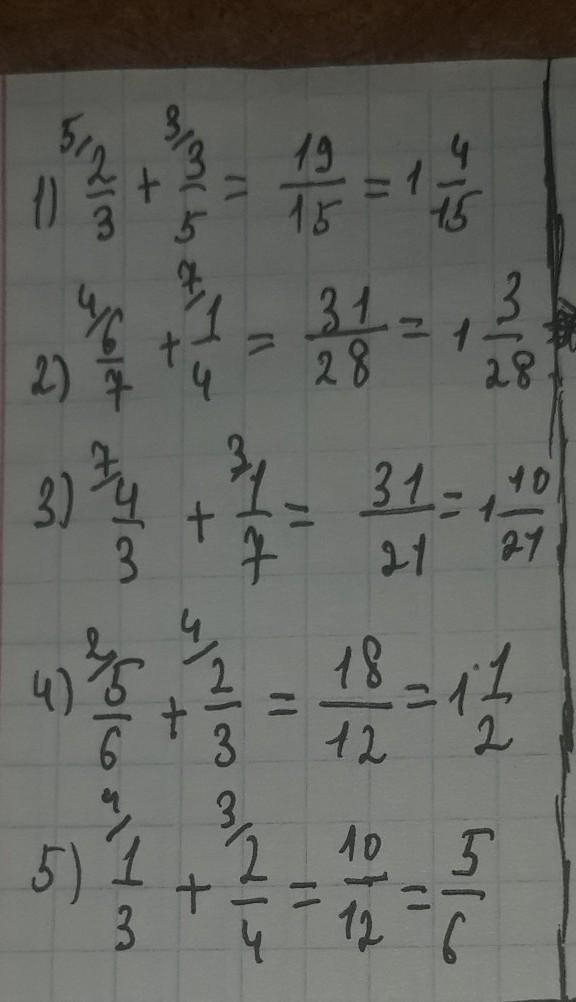 1) ⁵/ 2/3 + ³/ 3/5 = 19/15 = 1 4/15
2) ⁴/ 6/7 + ⁷/ 1/4 = 31/28 = 1 3/28
3) ⁷/ 4/3 + ³/ 1/7 = 31/21 = 1 10/21
4) ²/ 5/6 + ⁴/ 2/3 = 18/12 = 1 1/2
5) ⁴/ 1/3 + ³/ 2/4 = 10/12 = 5/6